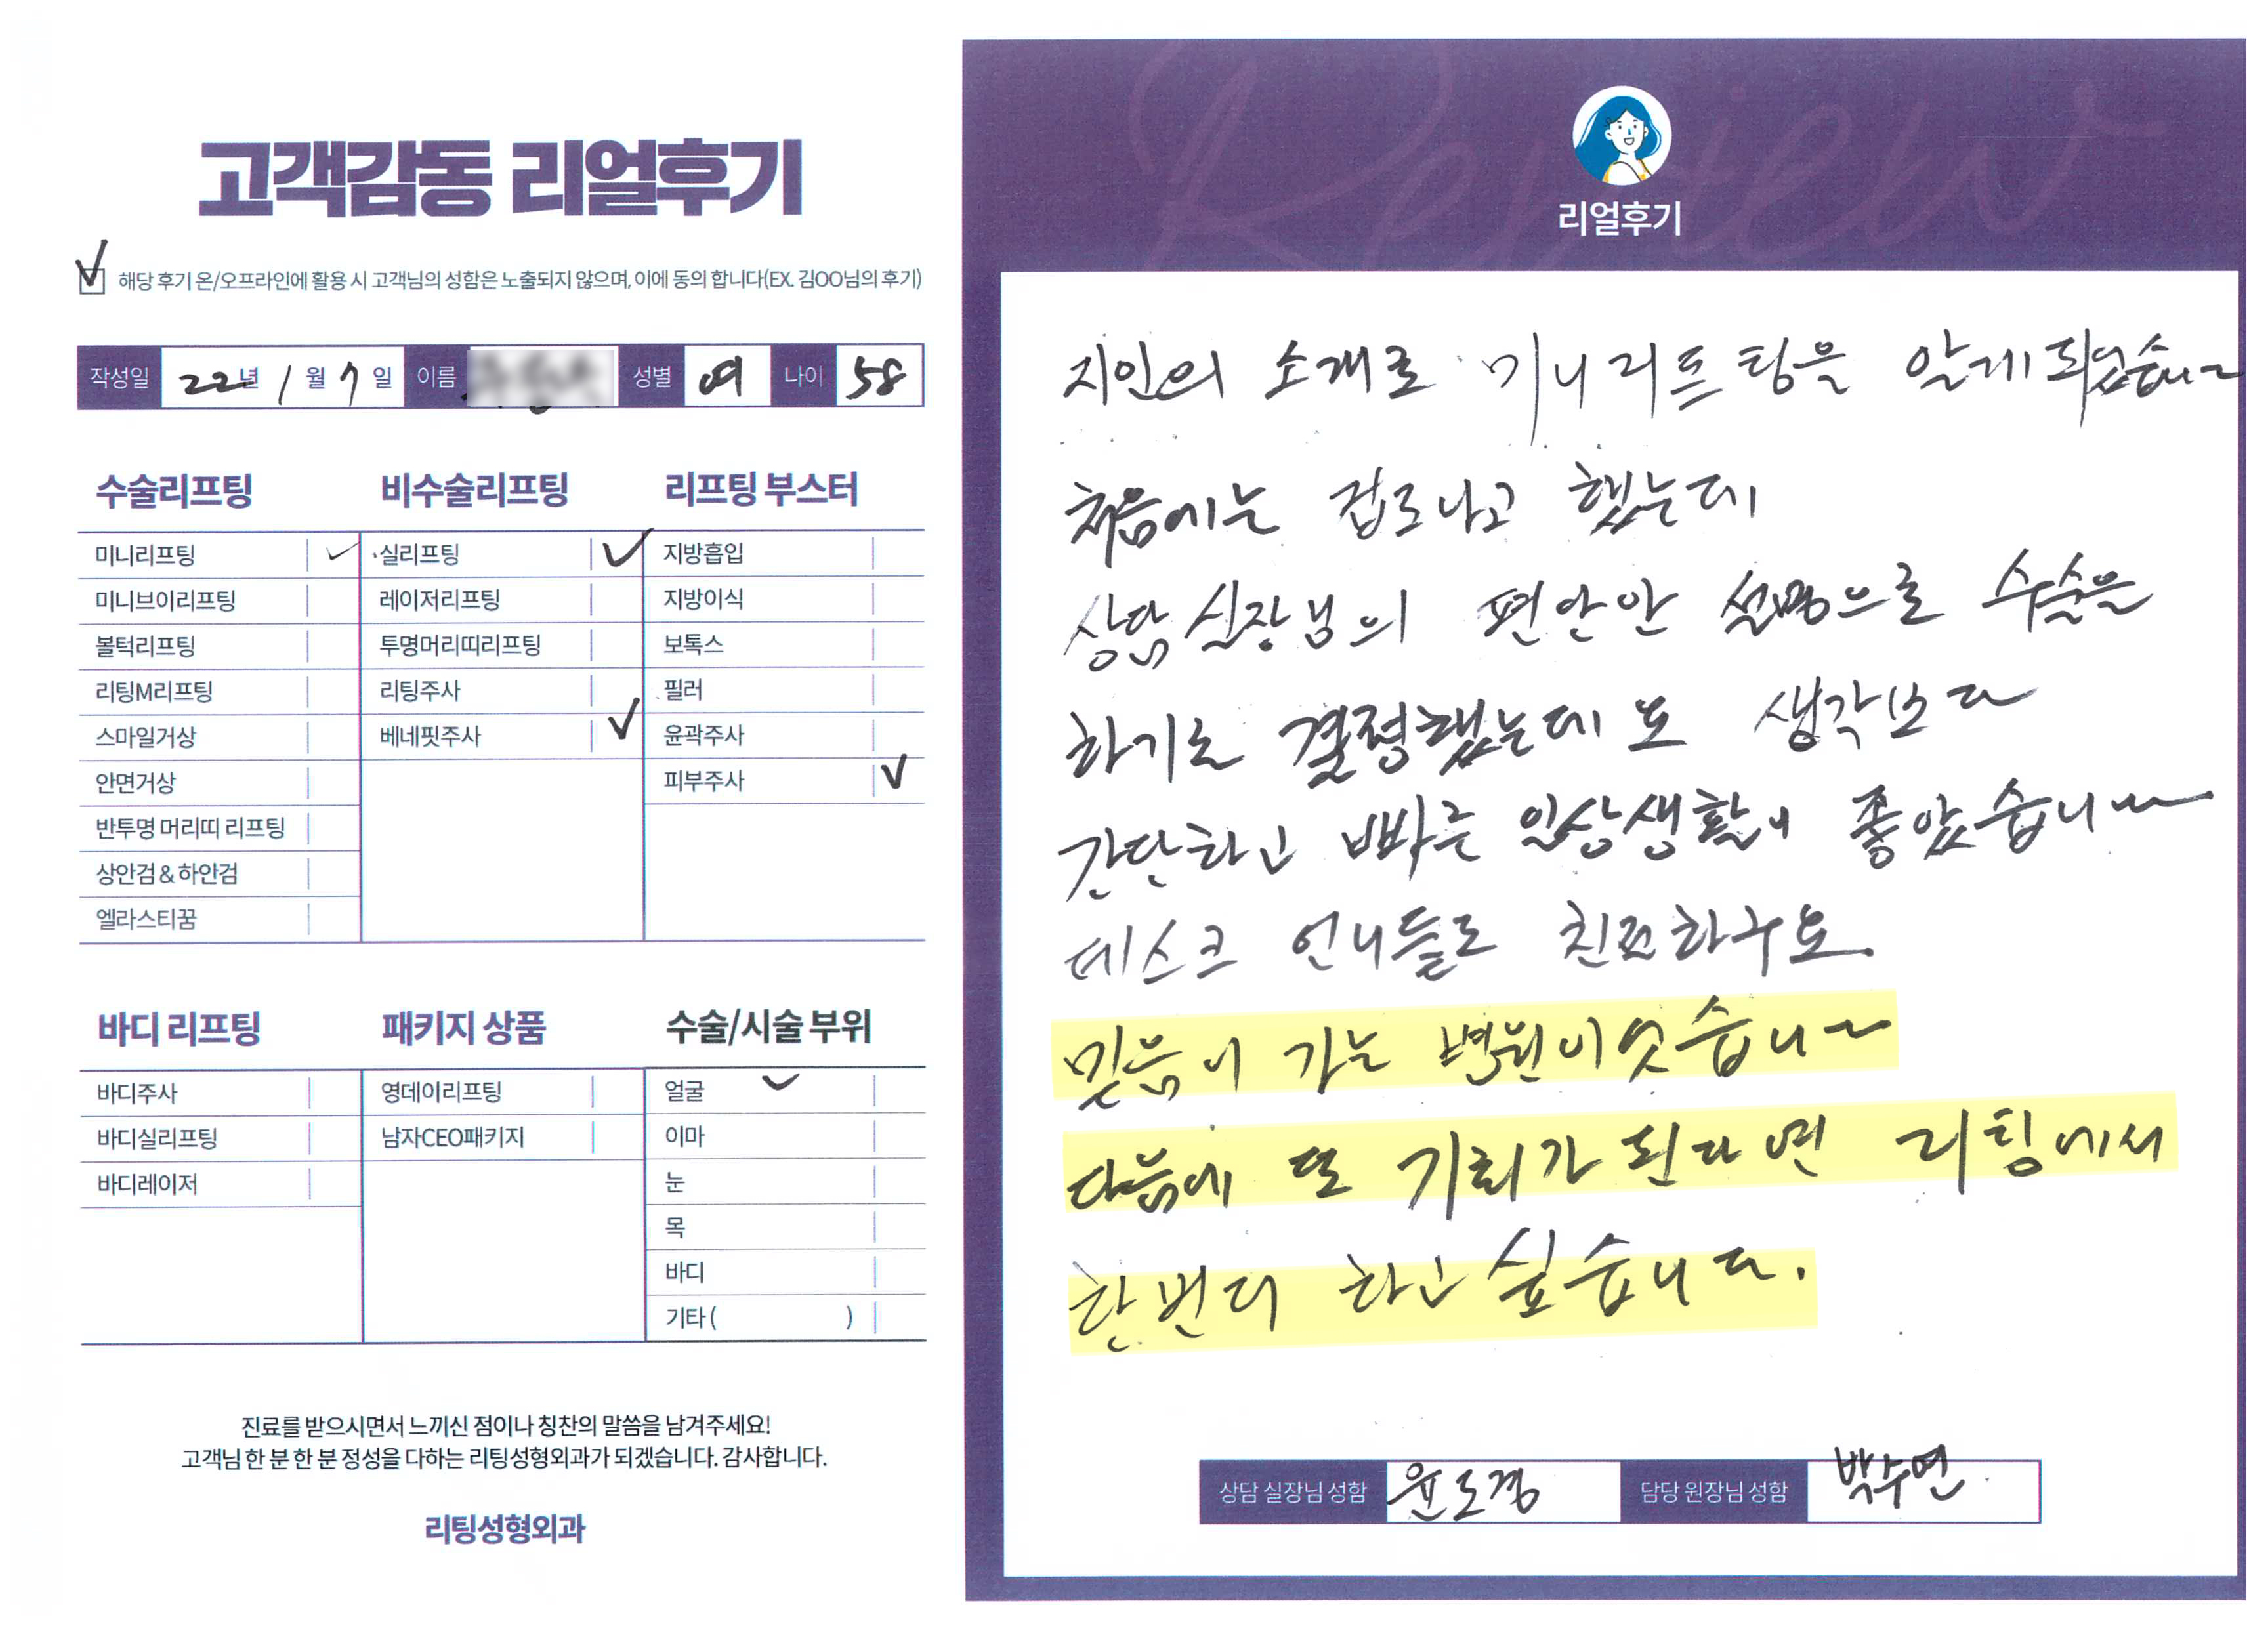 고객감동 리얼후기
해당 후기 온/오프라인에 활용 시 고객님의 성함은 노출되지 않으며, 이에 동의 합니다(EX. 김OO님의 후기)
작성일 22년 1월 7일 이름 성별 여 나이 58
수술리프팅
미니리프팅
미니브이리프팅
볼턱리프팅
리팅M리프팅
스마일거상
안면거상
반투명 머리띠 리프팅
상안검 & 하안검
엘라스티꿈
비수술리프팅
실리프팅
레이저리프팅
투명머리띠리프팅
리팅주사
베네핏주사
리프팅 부스터
지방흡입
지방이식
보톡스
필러
윤곽주사
피부주사
바디 리프팅
바디주사
바디실리프팅
바디레이저
패키지 상품
영데이리프팅
남자CEO패키지
수술/시술 부위
얼굴
이마
눈
목
바디
기타 ( )
진료를 받으시면서 느끼신 점이나 칭찬의 말씀을 남겨주세요!
고객님 한 분 한 분 정성을 다하는 리팅성형외과가 되겠습니다. 감사합니다.
리팅성형외과
Review
리얼후기
지인의 소개로 미니리프팅을 알게되었습니다
처음에는 겁도나고 했는데
상담실장님의 편안안 설명으로 수술을
하기로 결정했는데 또 생각보다
간단하고 빠른 일상생활이 좋았습니다
데스크 언니들도 친절하구요.
믿음이 가는 병원이엇습니다
다음에 또 기회가 된다면 리팅에서
한번더 하고싶습니다.
상담 실장님 성함 윤도경 담당 원장님 성함 박수연